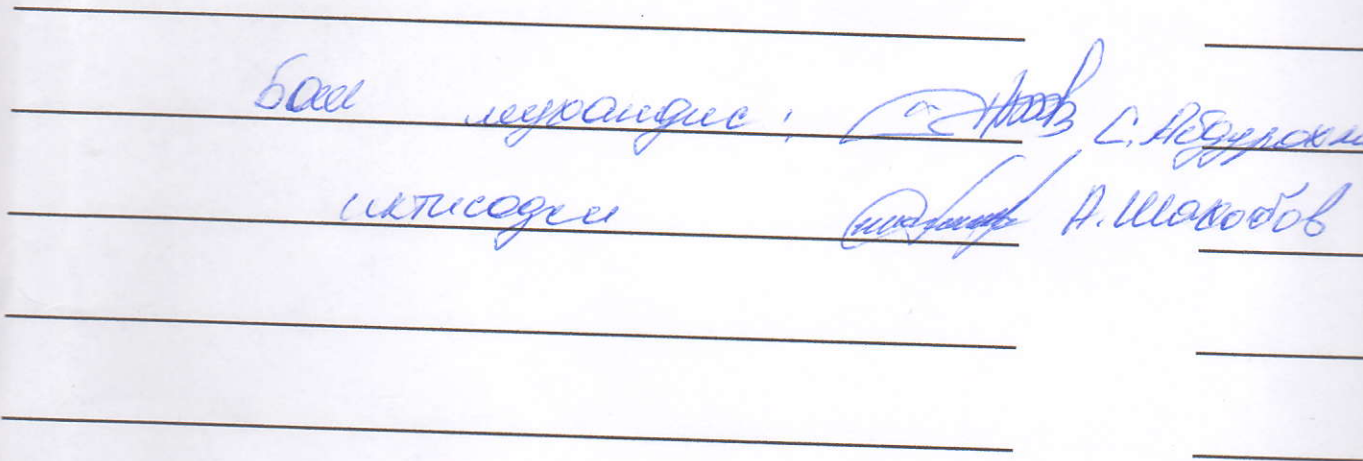 Бош мухандис: С. Абдурохм
иктисодчи А. Шакобов